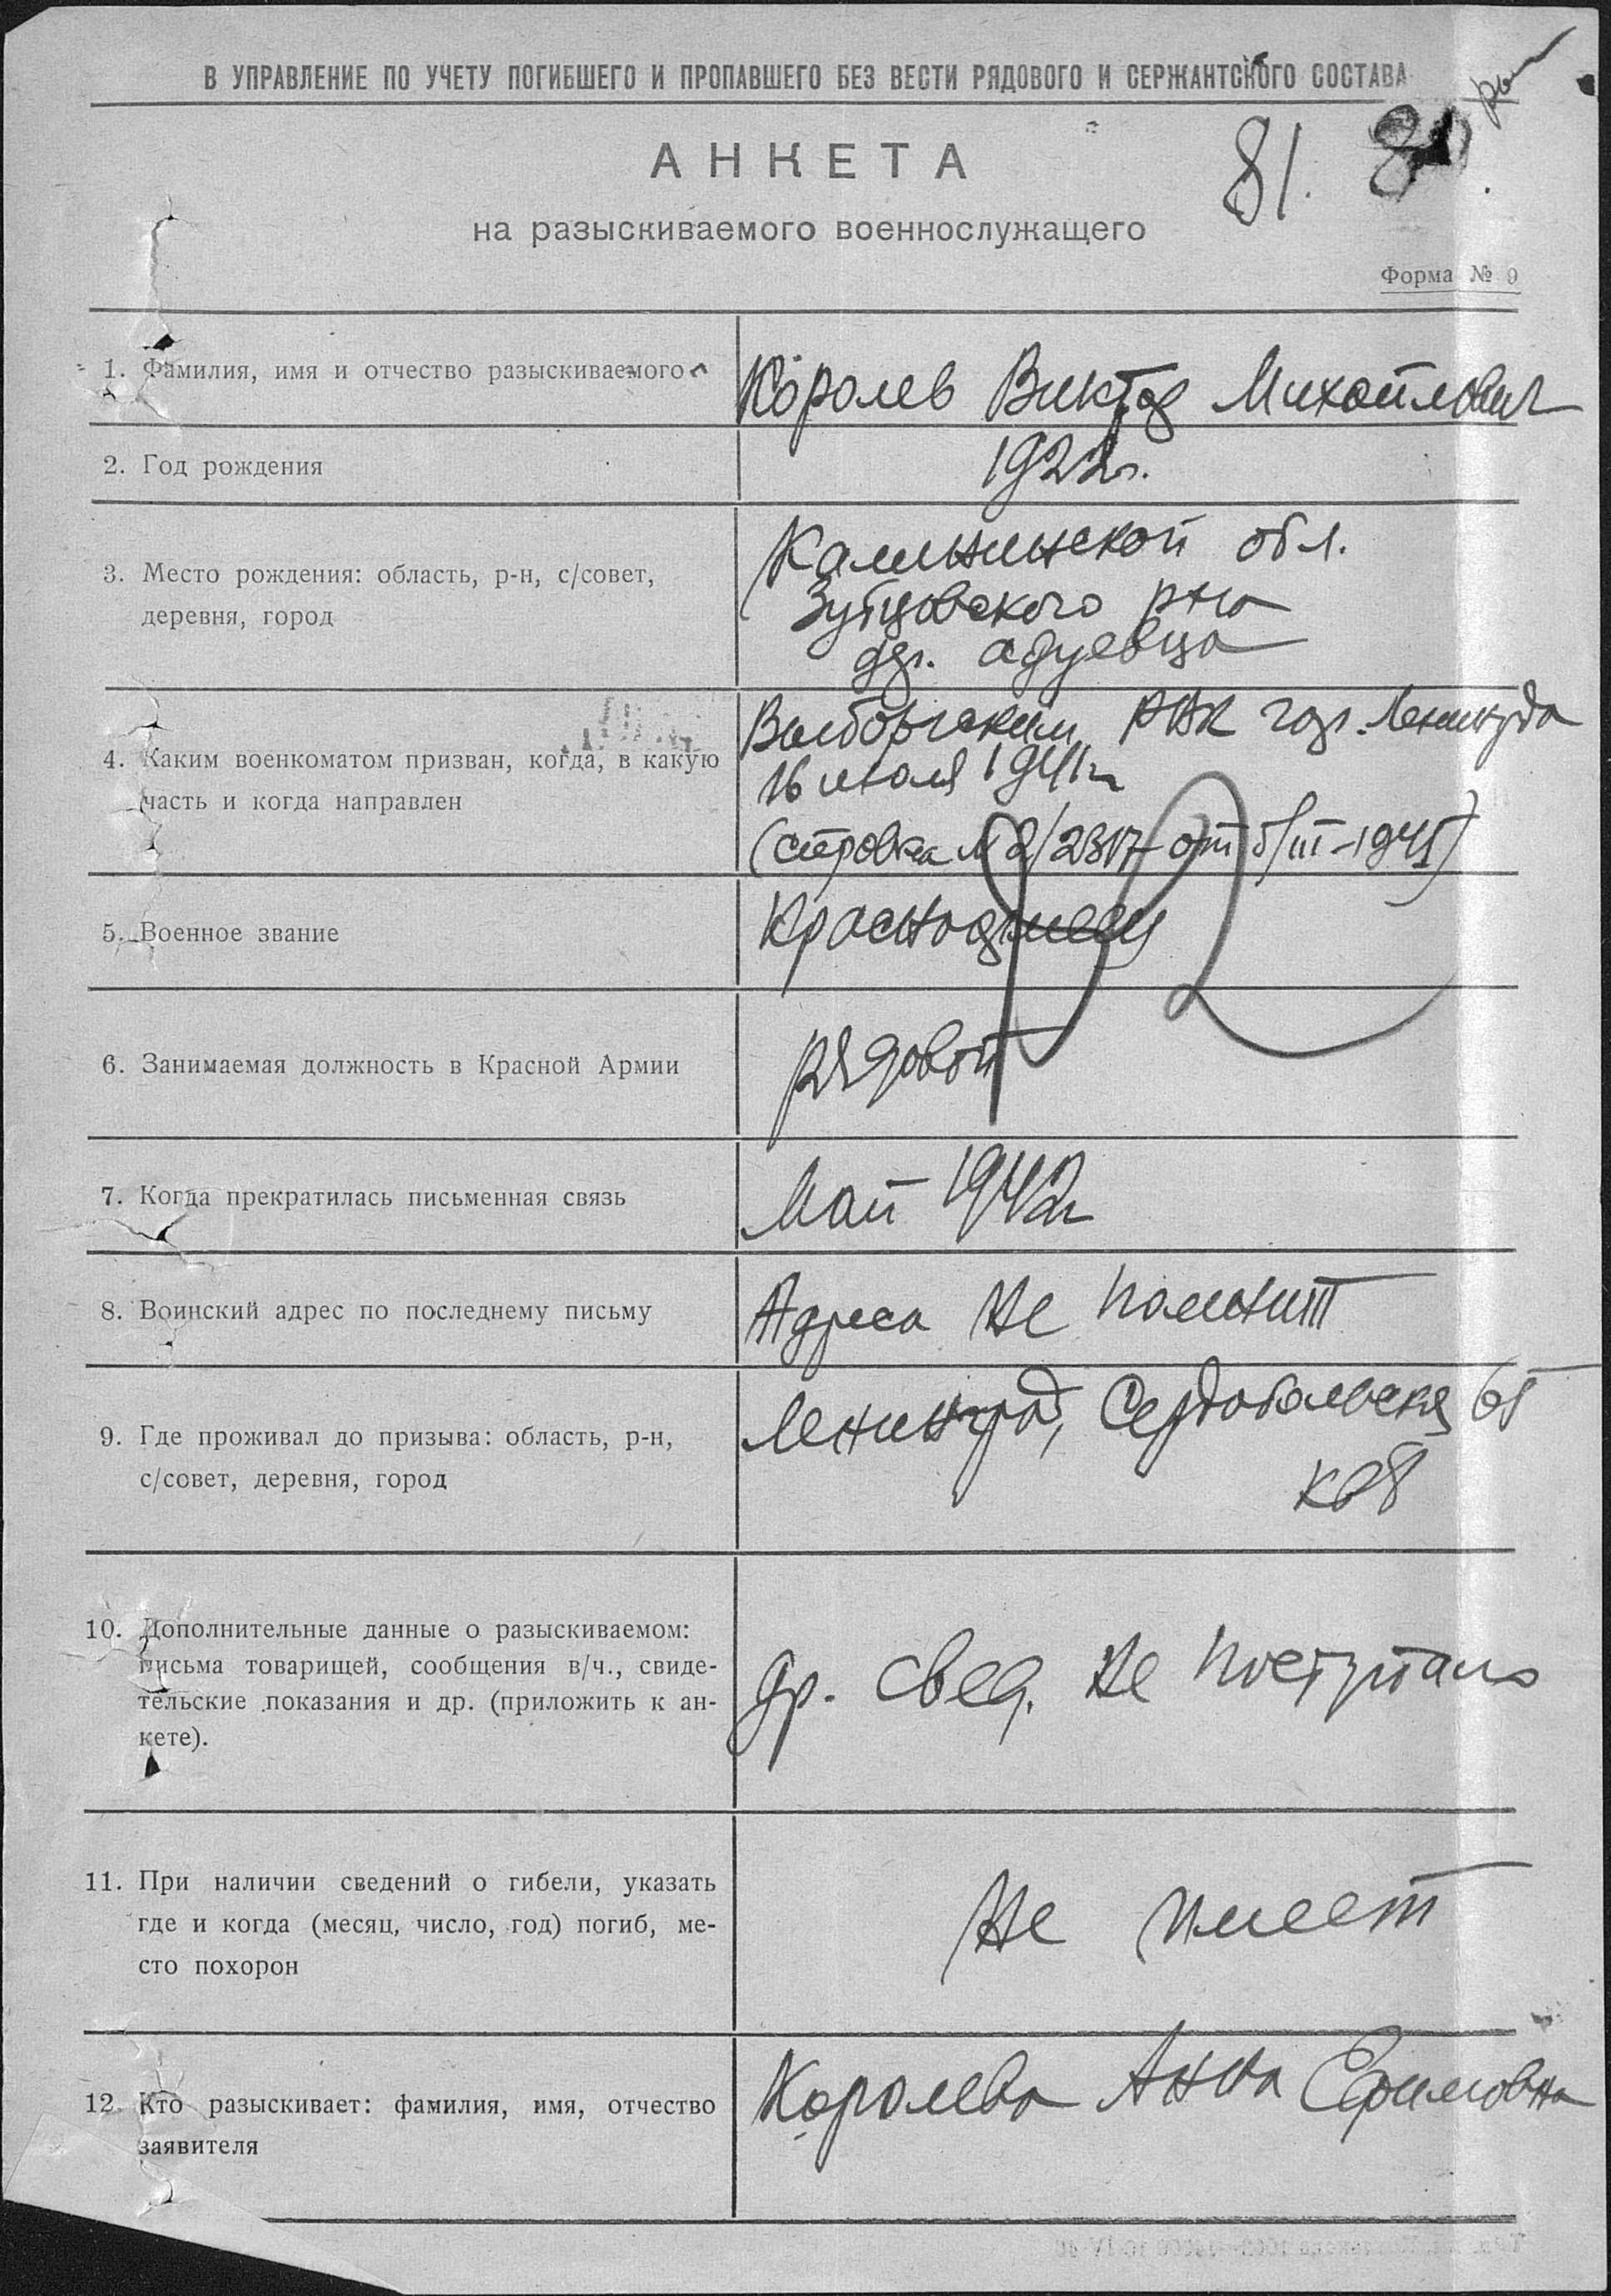 В УПРАВЛЕНИЕ ПО УЧЕТУ ПОГИБШЕГО И ПРОПАВШЕГО БЕЗ ВЕСТИ РЯДОВОГО И СЕРЖАНТСКОГО СОСТАВА
АНКЕТА
81.
на разыскиваемого военнослужащего
Форма № 9
1. Фамилия, имя и отчество разыскиваемого
Королев Виктор Михайлович
2. Год рождения
1922г.
3. Место рождения: область, р-н, с/совет,
деревня, город
Калининской обл.
Зубцовского р-на
дер. Адуевца
4. Каким военкоматом призван, когда, в какую
часть и когда направлен
Выборгским РВК гор. Ленингрда
16 июля 1941г
(справка № 2/2317 от 5/III-1945)
5. Военное звание
Красноармеец
92
6. Занимаемая должность в Красной Армии
рядовой
7. Когда прекратилась письменная связь
Май 1942г
8. Воинский адрес по последнему письму
Адреса не помнит
9. Где проживал до призыва: область, р-н,
с/совет, деревня, город
Ленинград, Сердобольская 65
кв 8
10. Дополнительные данные о разыскиваемом:
письма товарищей, сообщения в/ч., свиде-
тельские показания и др. (приложить к ан-
кете).
др. свед. не поступало
11. При наличии сведений о гибели, указать
где и когда (месяц, число, год) погиб, ме-
сто похорон
Не имеет
12. Кто разыскивает: фамилия, имя, отчество
заявителя
Королева Анна Ефимовна